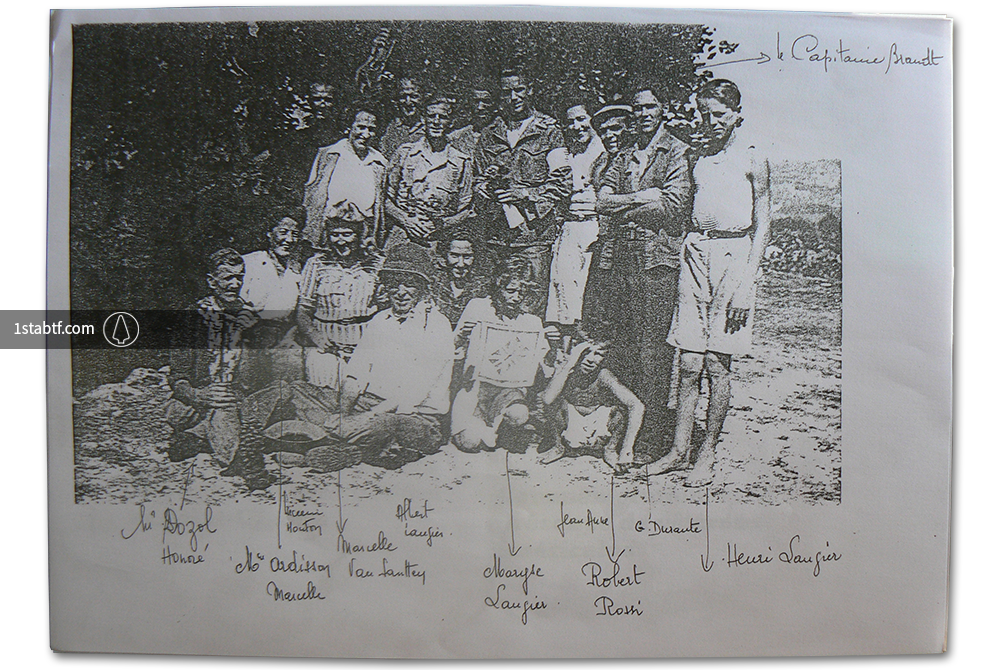 le Capitaine Brandt
1stabtf.com
Mr Dozol
Honoré
Mme Ardisson
Marcelle
Marcelle
Van Santten
Albert
Laugier.
Maryse
Laugier.
Jean
Robert
Rossi
G. Durante
Henri Laugier